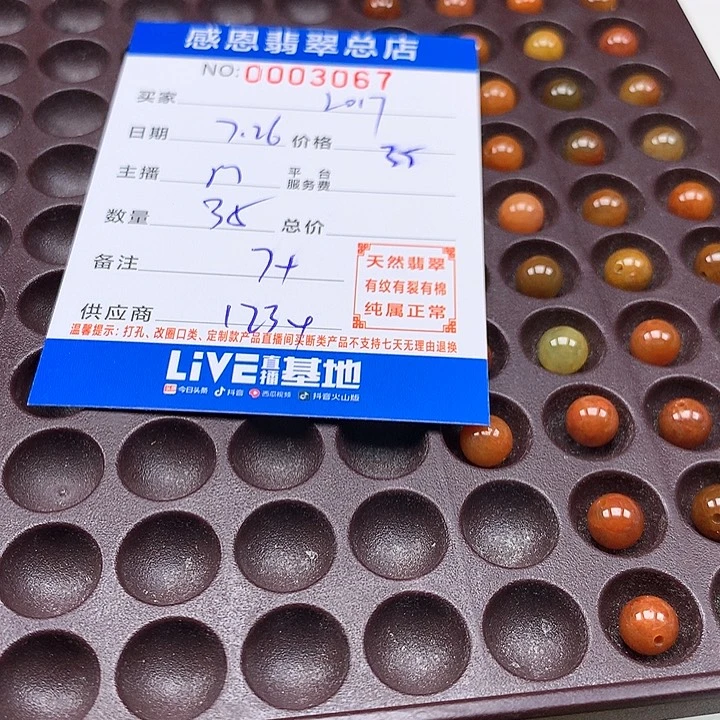 感恩翡翠总店
NO:0003067
买家 2017
日期 7.26 价格 35
主播 M 平台服务费
数量 35 总价
备注 7+
天然翡翠
有纹有裂有棉
纯属正常
供应商 1234
温馨提示：打孔、改圈口类、定制款产品直播间买断类产品不支持七天无理由退换
LiVE直播基地
今日头条 抖音 西瓜视频 抖音火山版